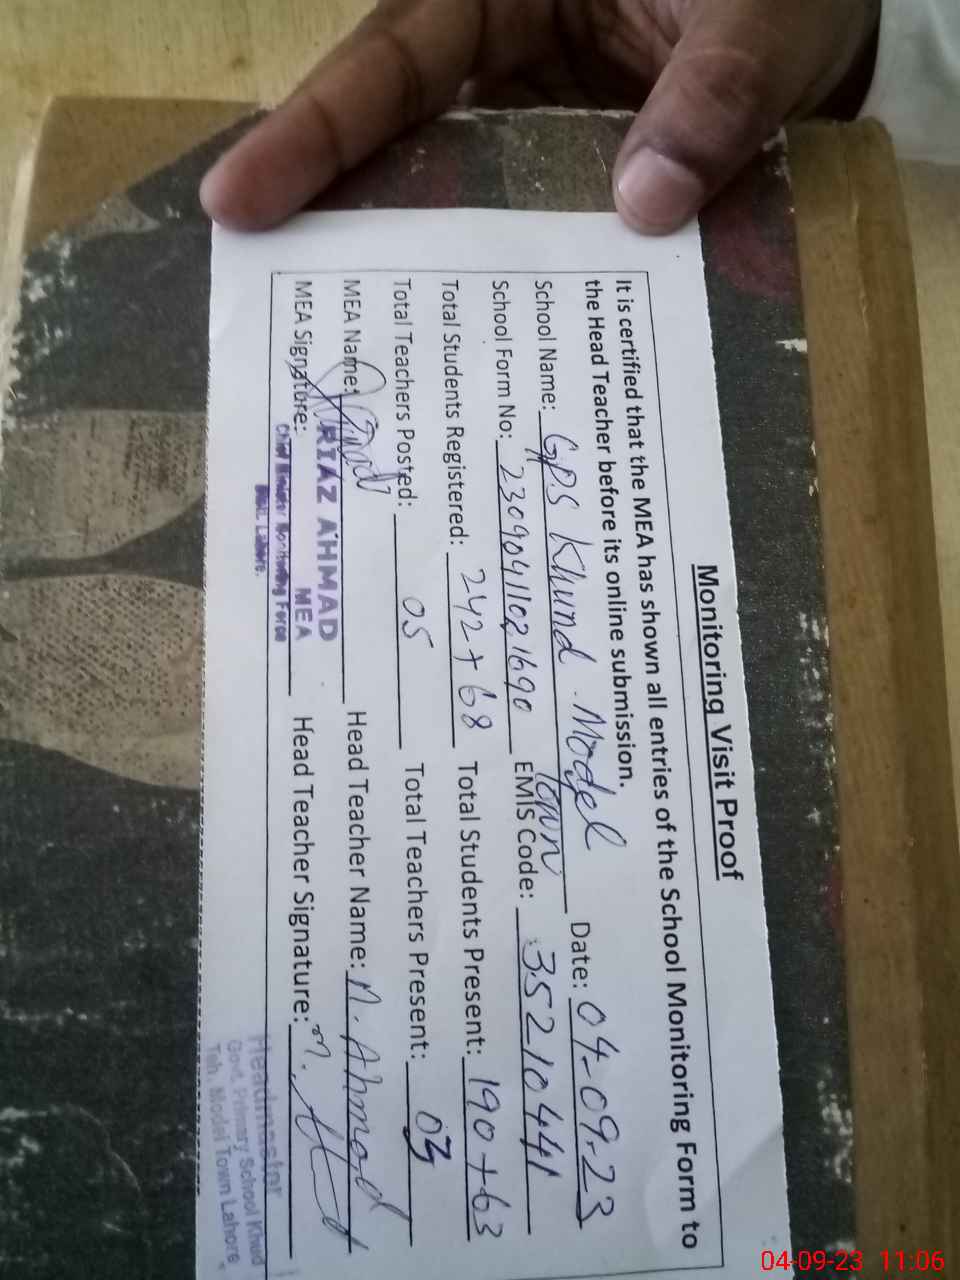 Monitoring Visit Proof
It is certified that the MEA has shown all entries of the School Monitoring Form to
the Head Teacher before its online submission.
School Name: GPS Khund Model Town Date: 04-09-23
School Form No: 23090411021690 EMIS Code: 35210441
Total Students Registered: 242+68 Total Students Present: 190+63
Total Teachers Posted: 05 Total Teachers Present: 03
MEA Name: Head Teacher Name: M. Ahmad
MEA Signature: Head Teacher Signature:
RIAZ AHMAD
MEA
Chief Minister Monitoring Force
Distt. Lahore.
Headmaster
Govt. Primary School Khud
Teh. Model Town Lahore
04-09-23 11:06